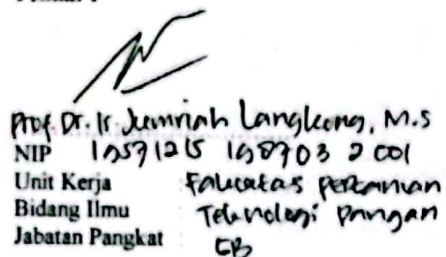 Prof. Dr. Ir. Jumriah Langkong, M.S
NIP 19571215 198703 2 001
Unit Kerja : Fakultas Pertanian
Bidang Ilmu Teknologi Pangan
Jabatan Pangkat GB